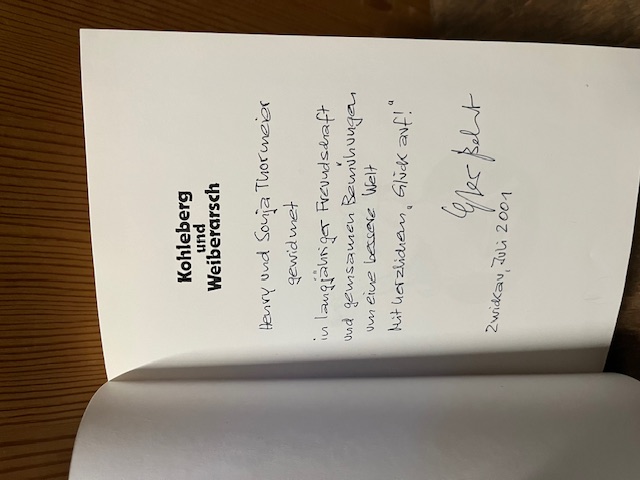 Kohleberg
und
Weiberarsch
Henry und Sonja Thormeier
gewidmet
in langjähriger Freundschaft
und gemeinsamen Bemühungen
um eine bessere Welt
Mit herzlichem „Glück auf!"
Zwickau, Juli 2001